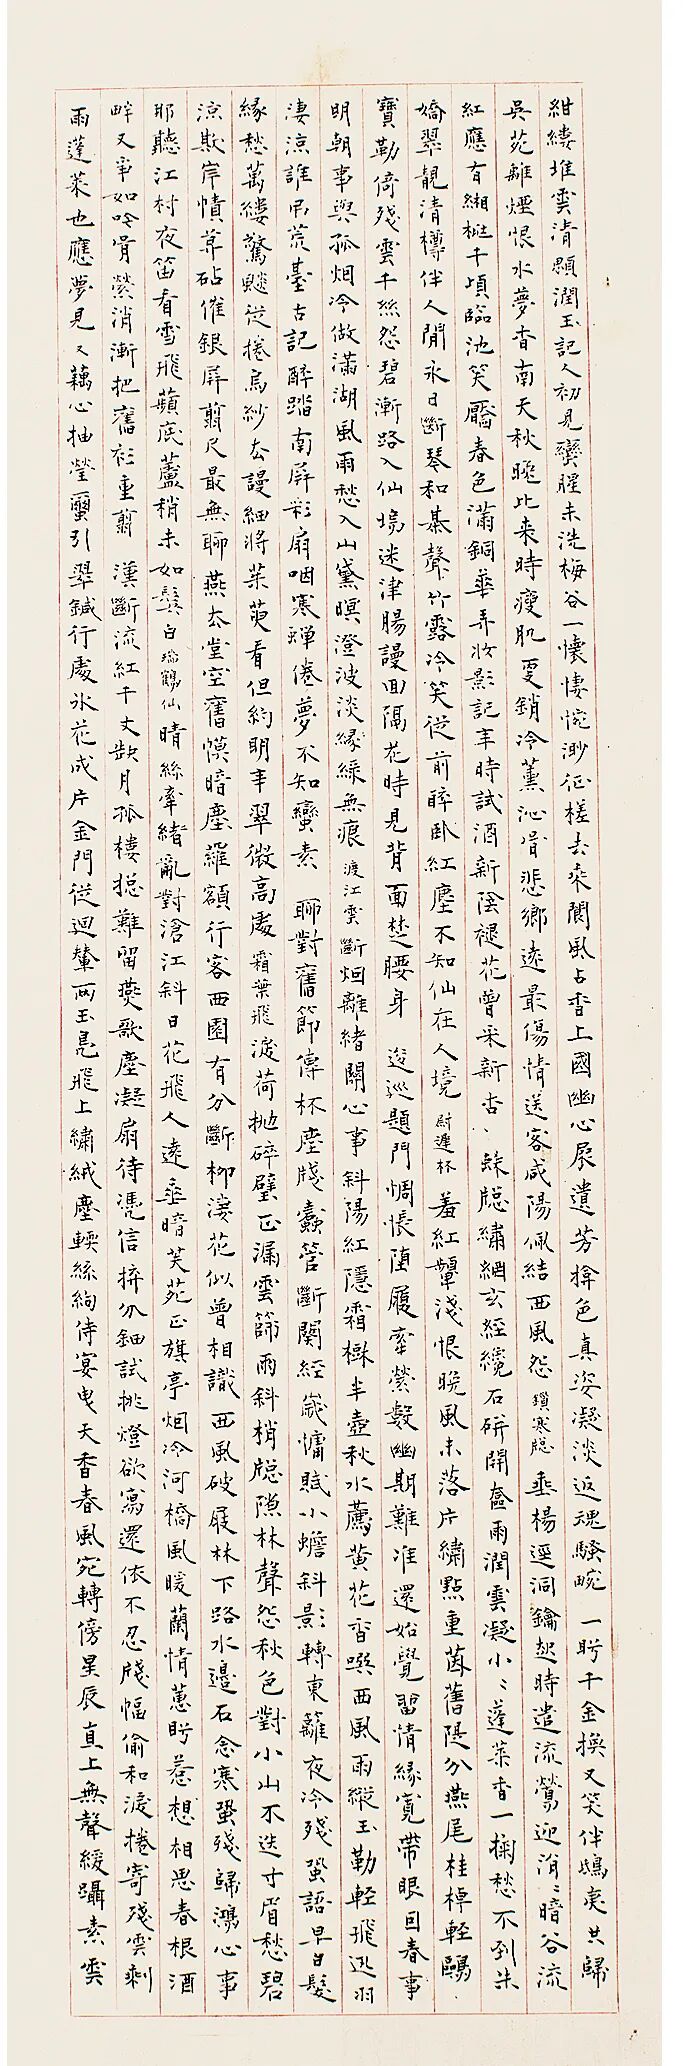 紺縷堆雲清顋潤玉記人初見蠻腥未洗梅谷一懷悽惋渺征槎去乘閬風占香上國幽心展遺芳揜色真姿凝淡返魂騷畹 一盻千金換又笑伴鴟夷共歸
吳苑離煙恨水夢杳南天秋晚比來時瘦肌更銷冷薰沁骨悲鄉遠最傷情送客咸陽佩結西風怨 鎖寒牕 垂楊逕洞鑰起時遣流鶯迎涓〻暗谷流
紅應有緗桃千頃臨池笑靨春色滿銅華弄妝影記年時試酒新陰褪花曾采新杏、蛛牕繡網玄經纔石研開奩雨潤雲凝小〻蓬萊香一掬愁不到朱
嬌翠靚清樽伴人閒永日斷琴和棊聲竹露冷笑從前醉卧紅塵不知仙在人境 尉遲杯 羞紅顰淺恨晚風未落片繡點重茵舊隄分燕尾桂棹輕鷗
寶勒倚殘雲千絲怨碧漸路入仙塢迷津腸謾回隔花時見背面楚腰身 逡巡題門惆悵墮履牽縈數幽期難准還始覺留情緣寬帶眼回春事
明朝事與孤烟冷做滿湖風雨愁入山黛暝澄波淡緣綠無痕 渡江雲 斷烟離緒關心事斜陽紅隱霜樹半壺秋水薦黃花香噀西風雨縱玉勒輕飛迅羽
淒涼誰弔荒臺古記醉踏南屏彩扇咽寒蟬倦夢不知蠻素 聊對舊節傳杯塵牋蠹管斷闋經歲慵賦小蟾斜影轉東籬夜冷殘蛩語早白髮
緣愁萬縷驚飈從捲烏紗去謾細將茱萸看但約明年翠微高處 霜葉飛 淚荷拋碎璧正漏雲篩雨斜梢牕隙林聲怨秋色對小山不迭寸眉愁碧
涼欺岸幘暮砧催銀屏翦尺最無聊 燕去堂空舊幙暗塵羅額行客西園有分斷柳淒花似曾相識西風破屐林下路水邊石念寒蛩殘歸鴻心事
那聽江村夜笛看雪飛蘋底蘆稍未如鬢白 瑞鶴仙 晴絲牽緒亂對滄江斜日花飛人遠垂暗吳苑正旗亭烟冷河橋風暖蘭情蕙盻惹想相思春根酒
畔又爭如吟骨縈消漸把舊衫重翦 淒斷流紅千丈缺月孤樓總難留燕歌塵凝扇待憑信拚分鈿試挑燈欲寫還依不忍牋幅偷和淚捲寄殘雲剩
雨蓬萊也應夢見又藕心抽瑩繭引翠鍼行處冰花成片金門從迴輦兩玉鳧飛上繡絨塵輭絲絇侍宴曳天香春風宛轉傍星辰直上無聲緩躡素雲